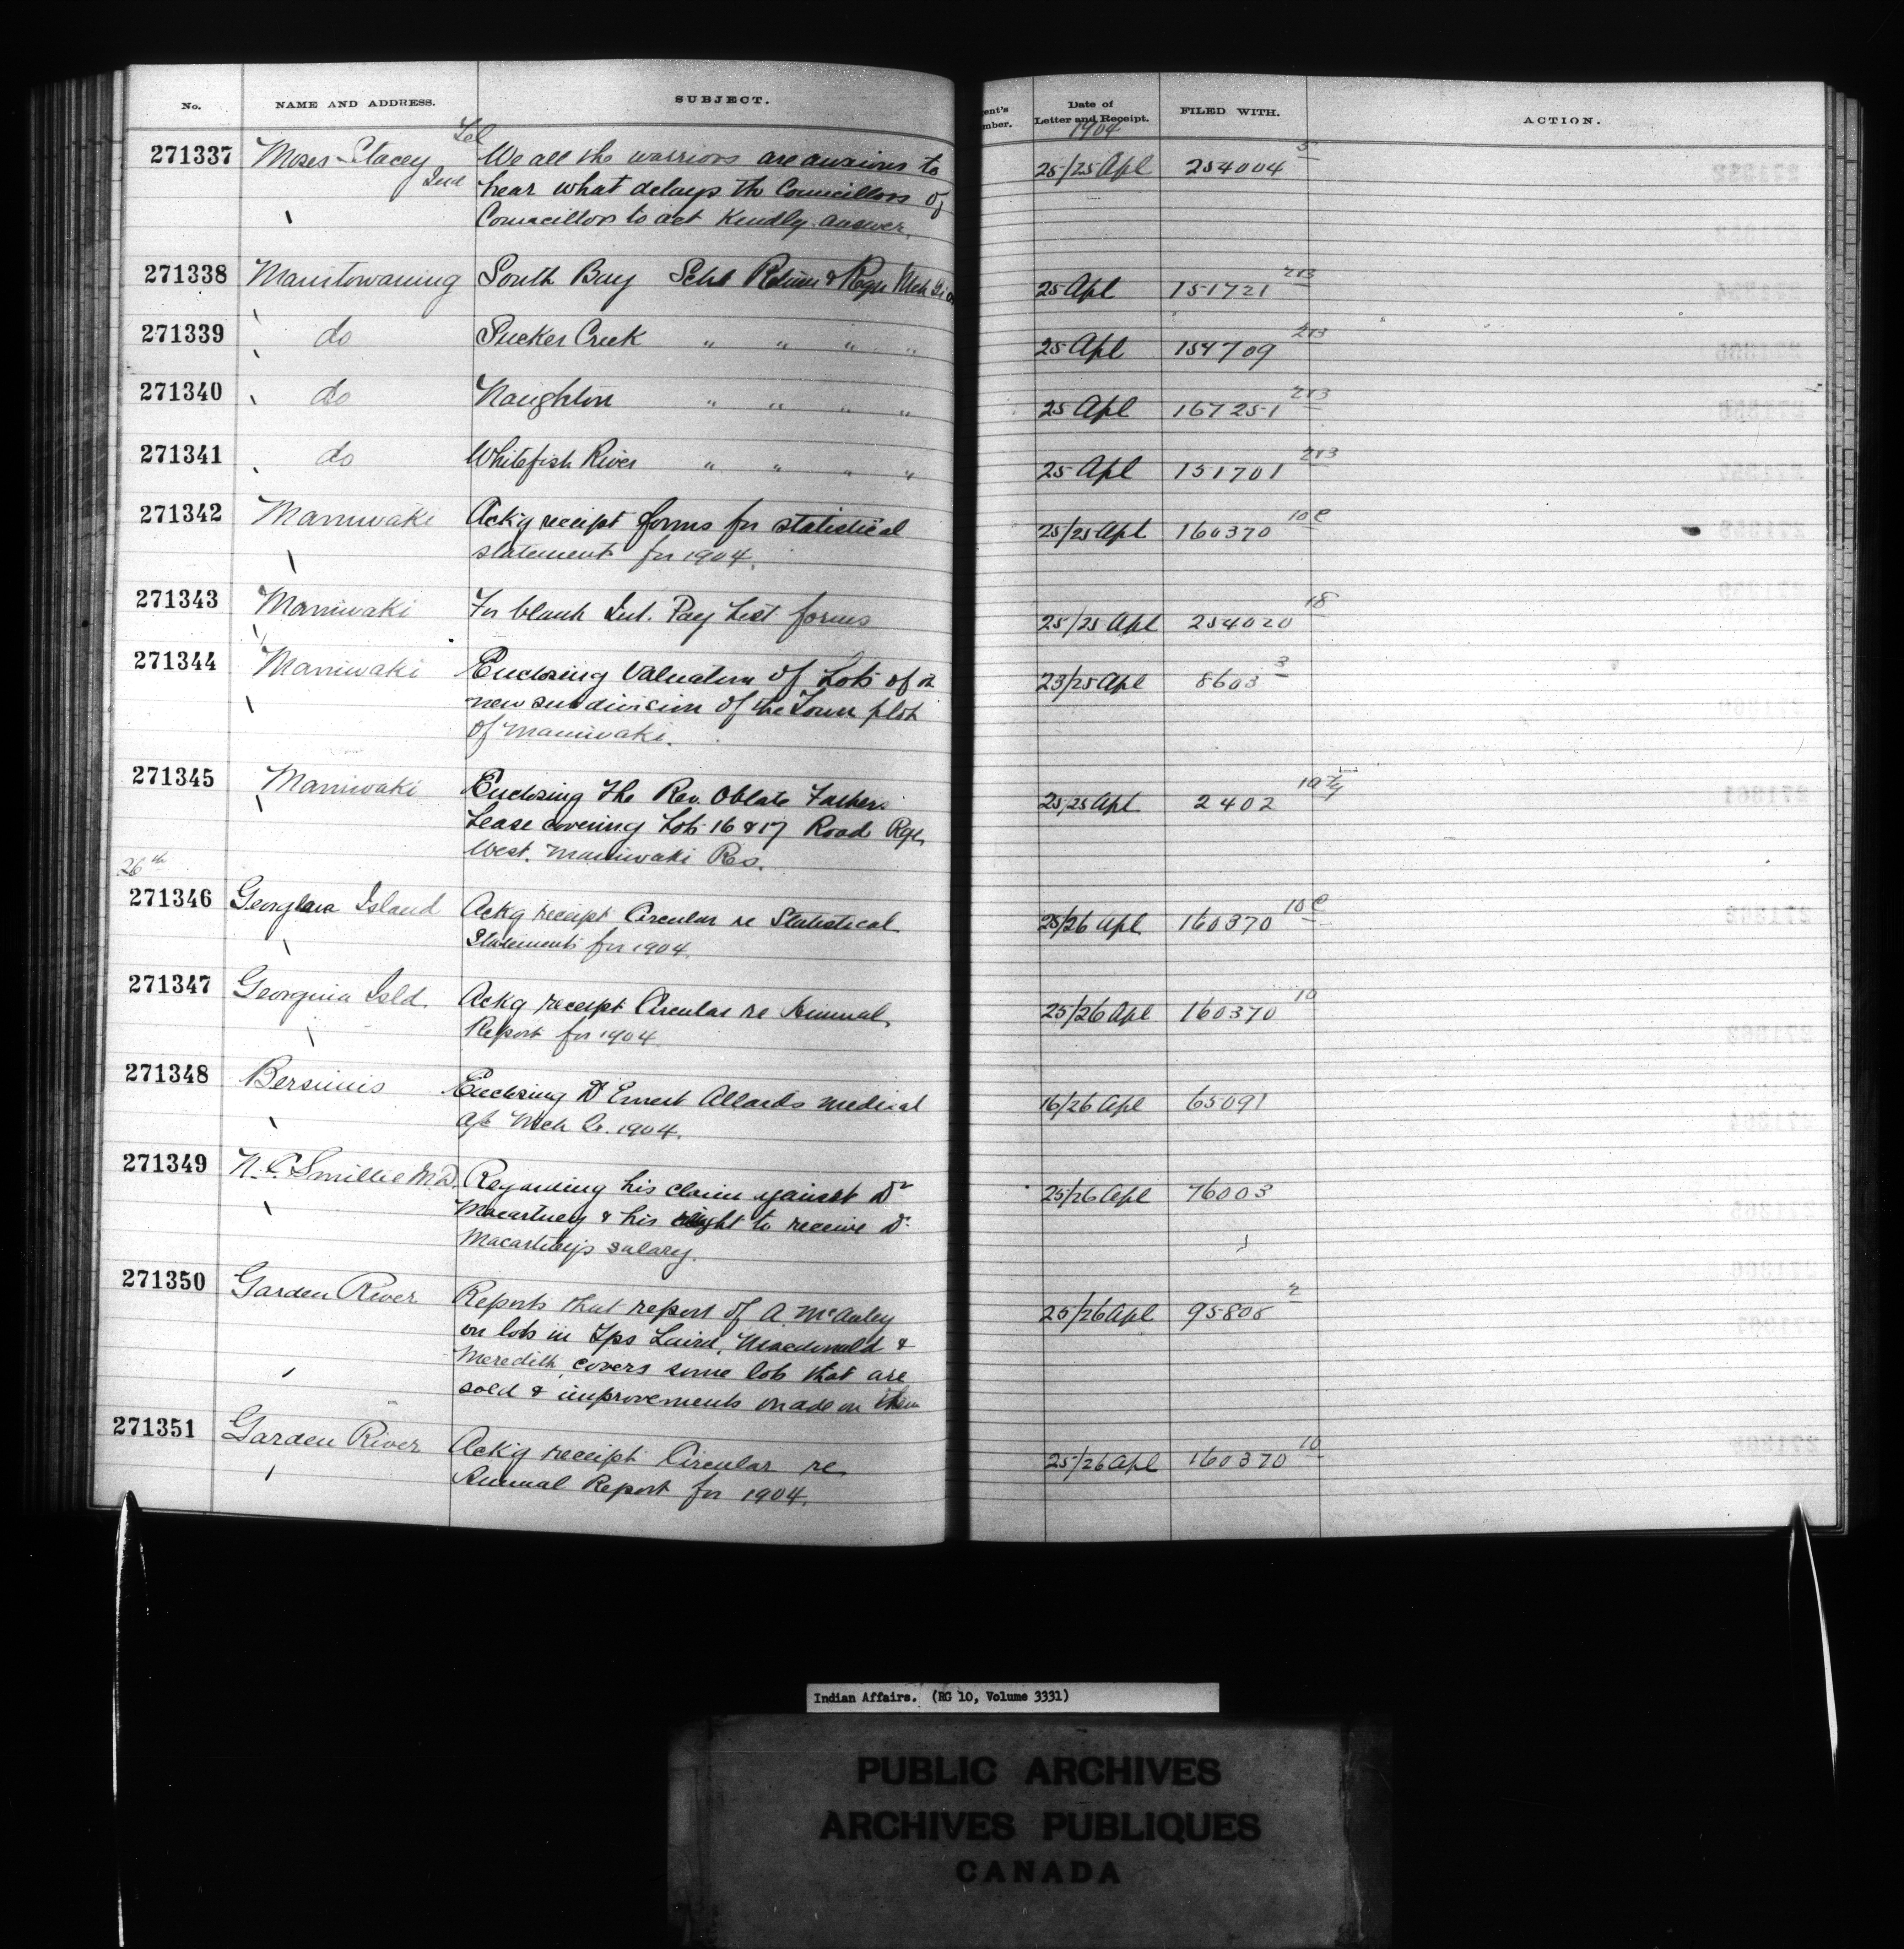 No. NAME AND ADDRESS. SUBJECT. Date of Letter and Receipt. FILED WITH. ACTION.
1904
271337 Moses Stacey Ind Tel We all the warriors are anxious to 25/25 Apl 254004 5
hear what delays the Councillors of
Councillors to act Kindly answer.
271338 Manitowaning South Bay Schl Return & Reqn Mch 25 Apl 151721 2x3
271339 do Sucker Creek " " " " 25 Apl 154709 2x3
271340 do Naughton " " " " 25 Apl 167251 2x3
271341 do Whitefish River " " " " 25 Apl 151701 2x3
271342 Maniwaki Ackg receipt forms for statistical 25/25 Apl 160370 10 C
statements for 1904.
271343 Maniwaki For blank Int. Pay List forms 25/25 Apl 254020 18
271344 Maniwaki Enclosing Valuation of Lots of a 23/25 Apl 8603 3
new subdivision of the Town plot
of Maniwaki.
271345 Maniwaki Enclosing The Rev. Oblate Fathers 25/25 Apl 2402
Lease covering Lots 16 & 17 Road Rge
West. Maniwaki Res.
26th
271346 Georgina Island Ackg receipt Circular re Statistical 25/26 Apl 160370 10 C
Statements for 1904.
271347 Georgina Isld. Ackg receipt Circular re Annual 25/26 Apl 160370 10
Report for 1904.
271348 Bersimis Enclosing Dr Ernest Allards medical 16/26 Apl 65091
a/c Mch Qr. 1904.
271349 N. C. Smillie M.D. Regarding his claim against Dr 25/26 Apl 76003
Macartney & his right to receive Dr.
Macartney's salary.
271350 Garden River Reports that report of A. McAuley 25/26 Apl 95808 2
on lots in Tps Laird, Macdonald &
Meredith covers some lots that are
sold & improvements made on them
271351 Garden River Ack'g receipt Circular re 25/26 Apl 160370 10
Annual Report for 1904.
Indian Affairs. (RG 10, Volume 3331)
PUBLIC ARCHIVES
ARCHIVES PUBLIQUES
CANADA